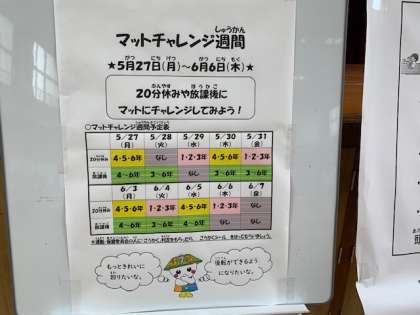 しゅうかん
マットチャレンジ週間
がつ にち げつ がつ にち もく
★5月27日(月)~6月6日(木)★
ほうかご
20分休みや放課後に
マットにチャレンジしてみよう!
○マットチャレンジ週間予定表
5/27 5/28 5/29 5/30 5/31
(月) (火) (水) (木) (金)
20分休み 4・5・6年 なし 1・2・3年 4・5・6年 1・2・3年
放課後 4~6年 3~6年 3~6年 4~6年 3~6年
6/3 6/4 6/5 6/6 6/7
(月) (火) (水) (木) (金)
20分休み 4・5・6年 1・2・3年 4・5・6年 1・2・3年 なし
放課後 4~6年 3~6年 なし なし
もっときれいに
回りたいな。
後転ができるよう
になりたいな。